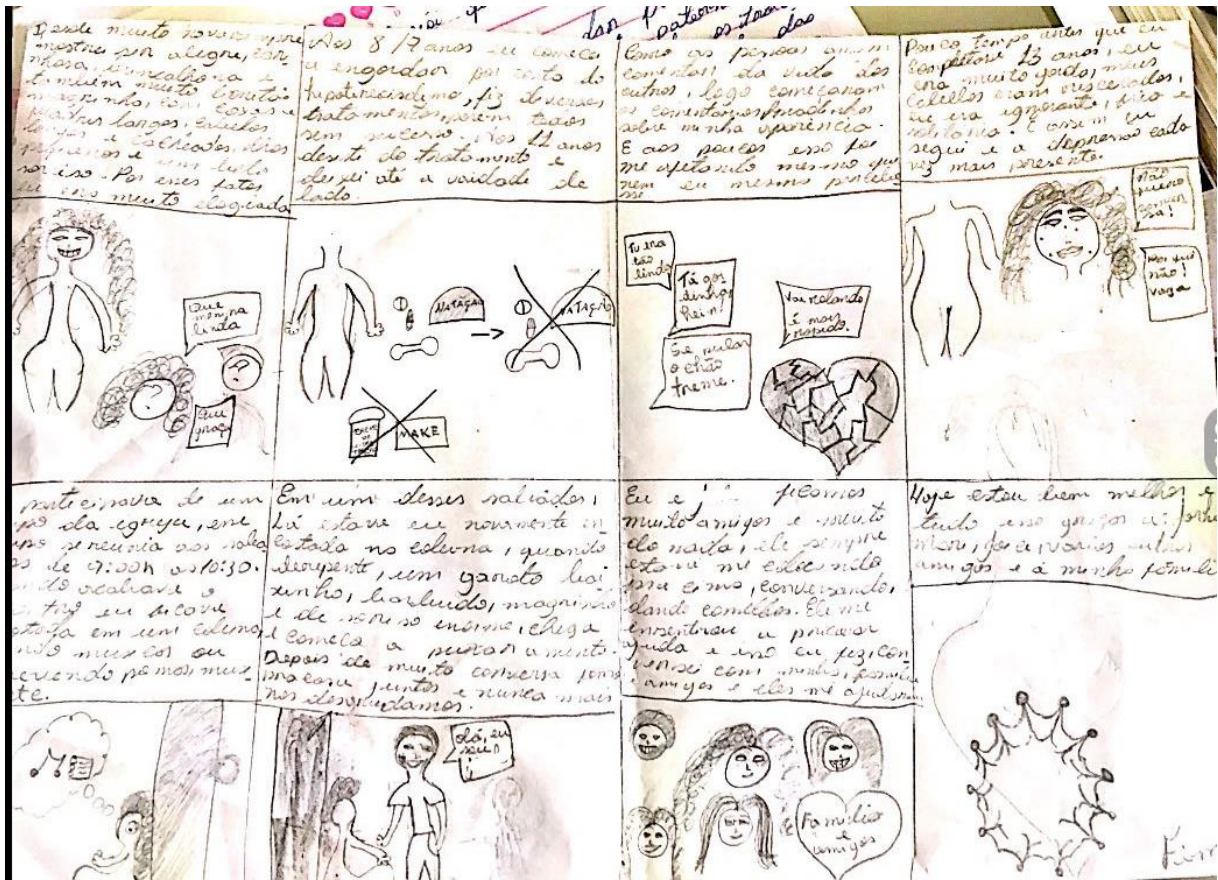 Desde muito nova eu sempre
mostrei ser alegre, cari
nhosa, brincalhona e
também muito bonita
magrinha, com coxas e
quadris largos, cabelos
longos e cachiados, olhos
pequenos e um belo
soriso. Por esses fatos
eu era muito elogiada
Que
menina
linda
Que
graça
Aos 8/7 anos eu comecei
a engordar por conta do
hipotireoidismo, fiz diversos
tratamentos, porém todos
sem sucesso. Aos 11 anos
desisti do tratamento e
deixei até a vaidade de
lado.
NATAÇÃO
NATAÇÃO
MAKE
Como as pessoas amam
comentar da vida dos
outros, logo começaram
os comentários/piadinhas
sobre minha aparência.
E aos poucos isso foi
me afetando mesmo que
nem eu mesma percebe
sse
Tu era
tão
linda
Tá gor
dinha
hein!
Se pular
o chão
treme.
Vai rolando
é mais
rápido.
Pouco tempo antes que eu
completare 13 anos, eu
era muito gorda, meus
cabellos eram
eu era ignorante, fria e
solitária. E assim eu
segui e a depressão cada
vez mais presente.
Não
quero
conver
sa!
Por quê
não!
Vaza
participava de um
da igreja, em
se reunia aos
de 9:00h as 10:30.
ndo acabava o
eu ficava
em um
músicas ou
poemas mus
te.
Em um desses sabádos,
Lá estava eu novamente en
costada na coluna, quando
derepente, um garoto bai
xinho, magrinho
e de soriso enorme, chega
e começa a puxar asunto.
Depois de muita conversa fomos
pra casa juntos e nunca mais
nos desgrudamos.
Olá, eu
sou
Eu e ficamos
muito amigos e
do nada, ele sempre
estava me
conversando,
dando concelhos. Ele me
insentivou a procurar
ajuda e isso eu fiz, con
versei com minha família
amigos e eles me ajudaram
Família
e
amigos
Hoje estou bem melhor e
tudo isso graças a:
varios outros
amigos e á minha famíli
Fim